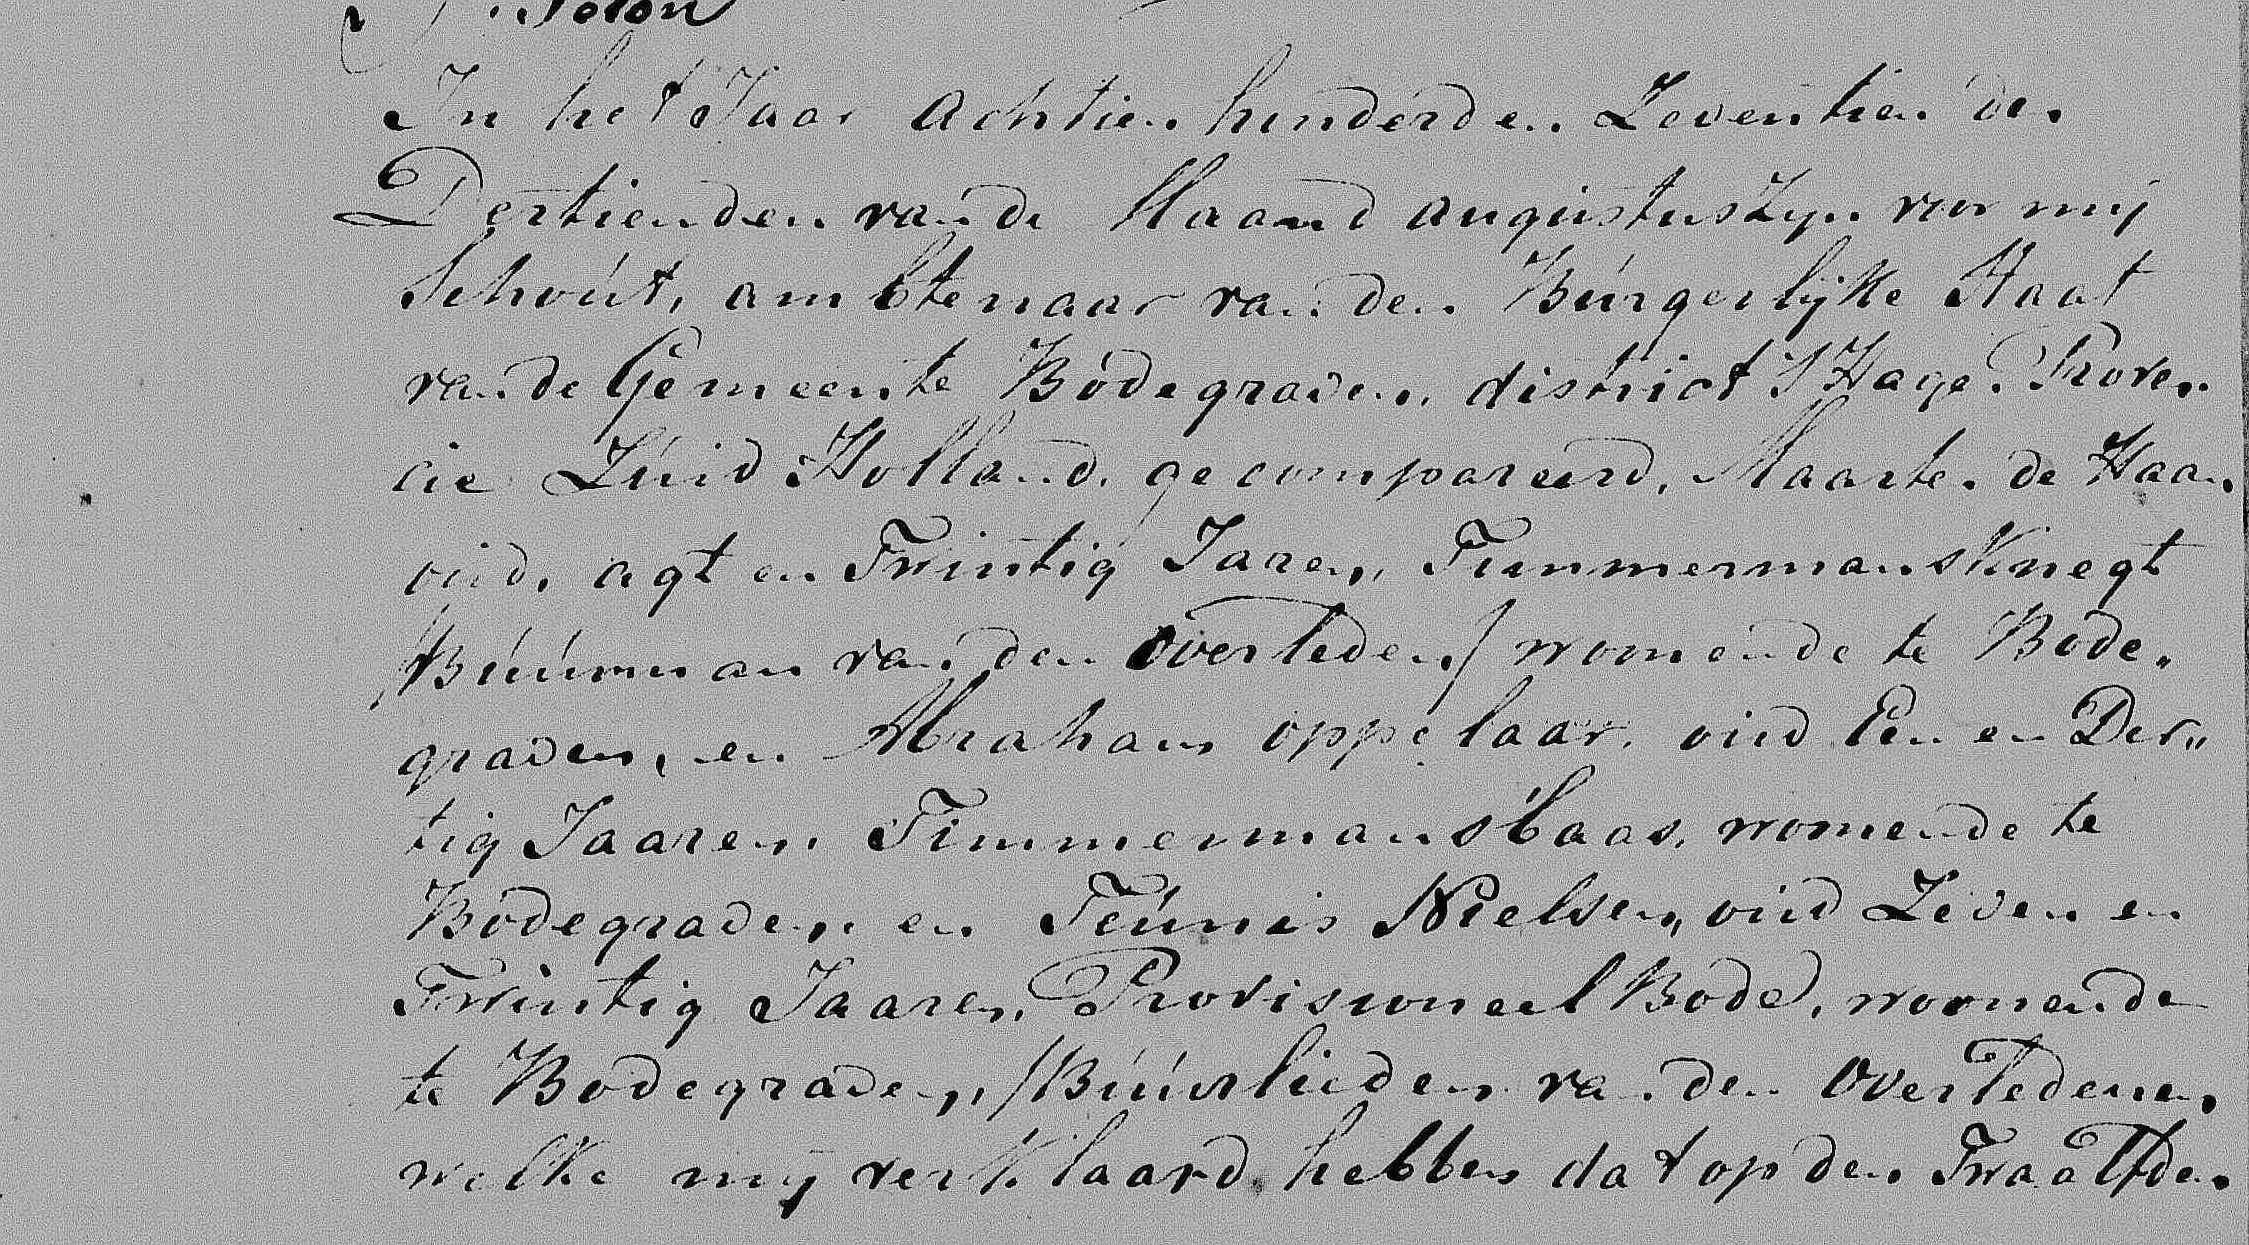 In het Jaar achtien hondert en Zeventien den
Dertienden van de Maand augustus Zyn voor mij
Schout, ambtenaar van den Burgerlijke Staat
van de Gemeente Bodegraven, district S Hage. Proven
cie Zuid Holland. gecompareerd, Maarten de Haan
oud, agt en Twintig Jaren, Timmermans Knegt
/Buurman van den Overleden/ womende te Bode„
graven, en Abraham oppelaar, oud Een en Der„
tig Jaaren, Timmermans baas, womende te
Bodegraven, en Teunis Nielsen, oud Zeven en
Twintig Jaaren, Provisioneel Bode, woonende
te Bodegraven, /Buurlieden van den Overledenen,
welke mij verklaard hebben dat op den Twaalfden